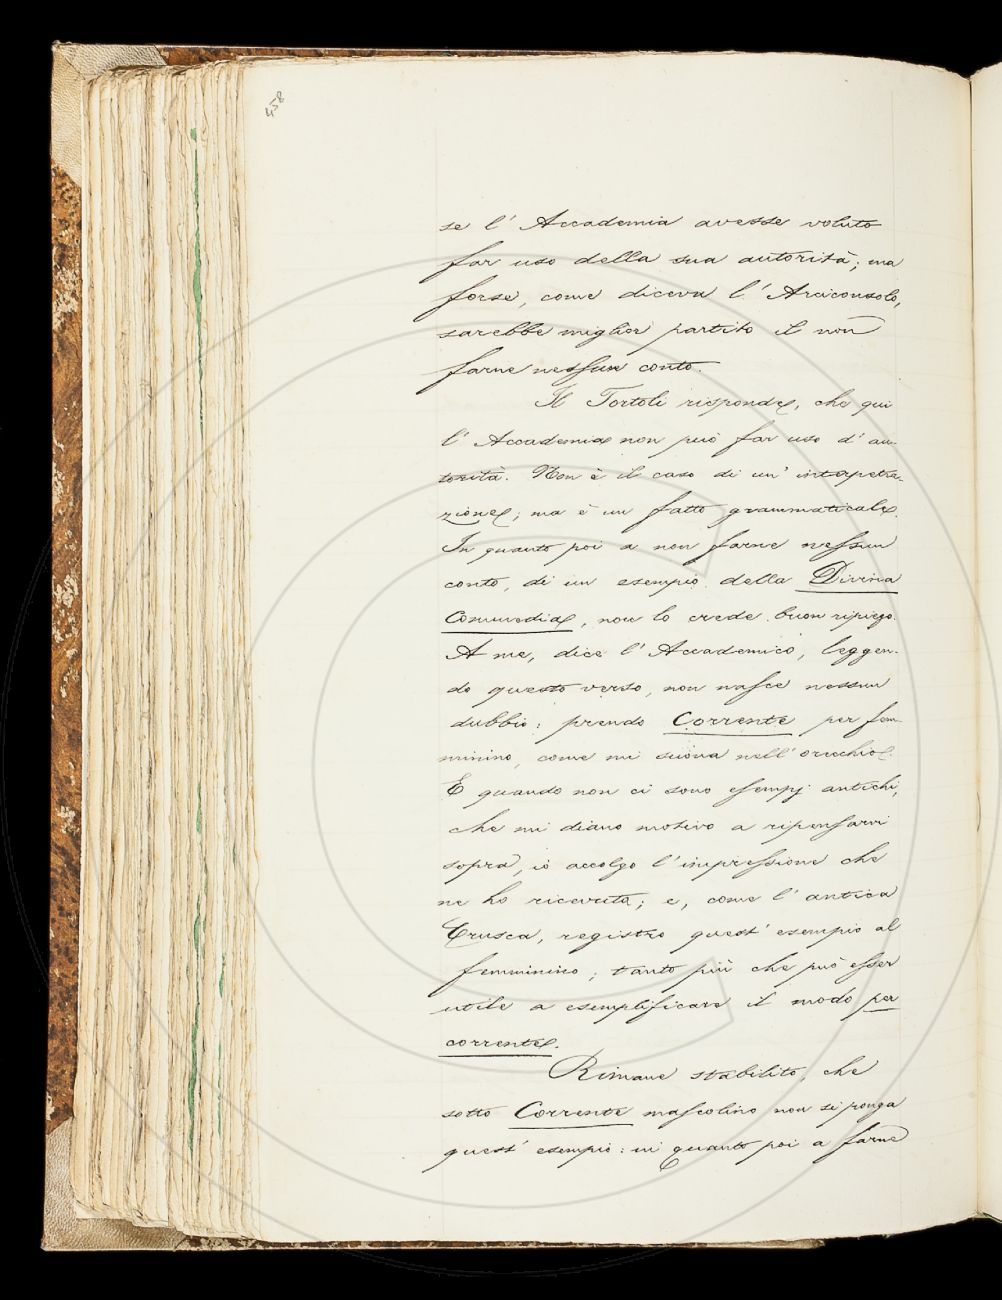 458
se l' Accademia avesse voluto
far uso della sua autorità; ma
forse, come diceva l' Arciconsolo,
sarebbe miglior partito il non
farne nessun conto.
Il Tortoli risponde, che qui
l' Accademia non può far uso d' au-
torità. Non è il caso di un' interpetra-
zione; ma è un fatto grammaticale.
In quanto poi a non farne nessun
conto, di un esempio della Divina
Commedia, non lo crede buon ripiego.
A me, dice l' Accademico, leggen-
do questo verso, non nasce nessun
dubbio: prendo Corrente per fem-
minino, come mi suona nell' orecchio.
E quando non ci sono esempj antichi,
che mi diano motivo a ripensarvi
sopra, io accolgo l' impressione che
ne ho ricevuta; e, come l' antica
Crusca, registro quest' esempio al
femminino; tanto più che può esser
utile a esemplificare il modo per
corrente.
Rimane stabilito, che
sotto Corrente mascolino non si ponga
quest' esempio: in quanto poi a farne